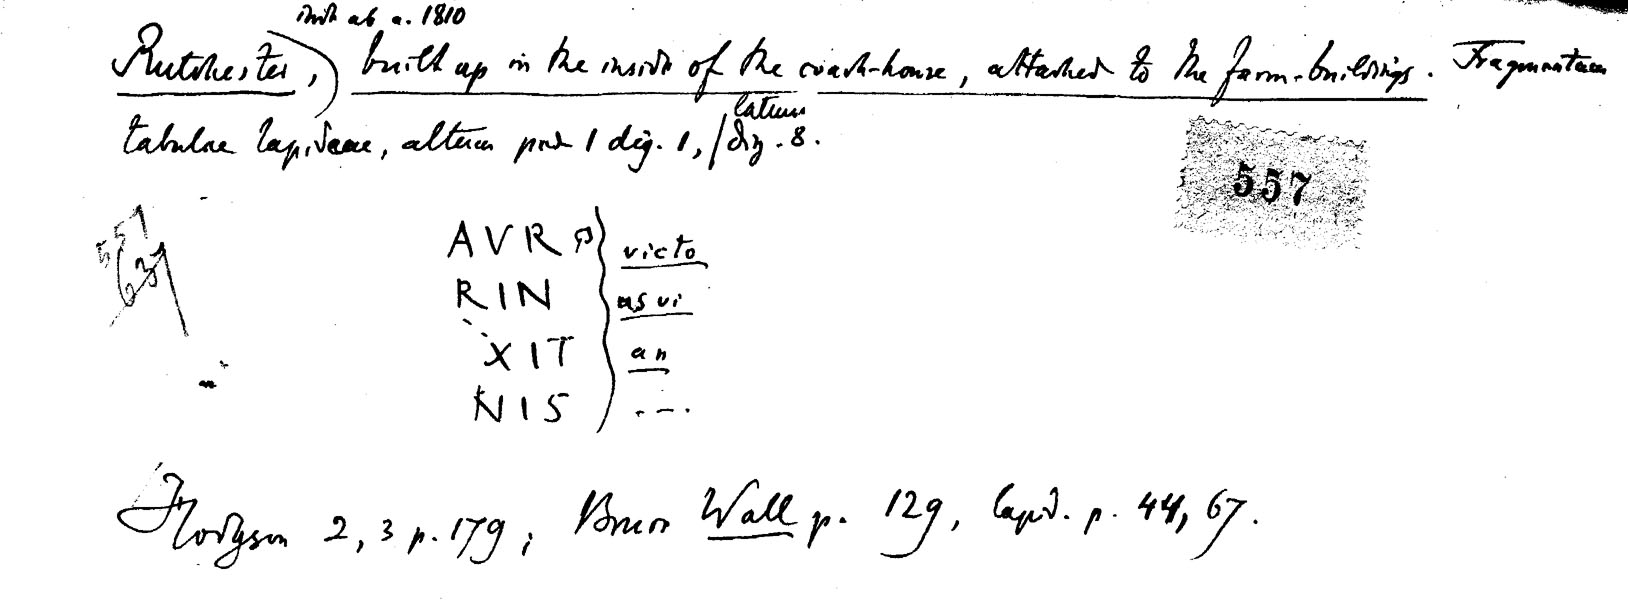 inde ab a. 1810
Rutchester, built up in the inside of the coach-house, attached to the farm-buildings. Fragmentum
tabulae lapideae, altum ped 1 dig. 1, latum dig. 8.
557
557
637
AVR victo
RIN as vi
XIT an
NIS ....
Hodgson 2, 3 p. 179; Bruce Wall p. 129, lapid. p. 44, 67.